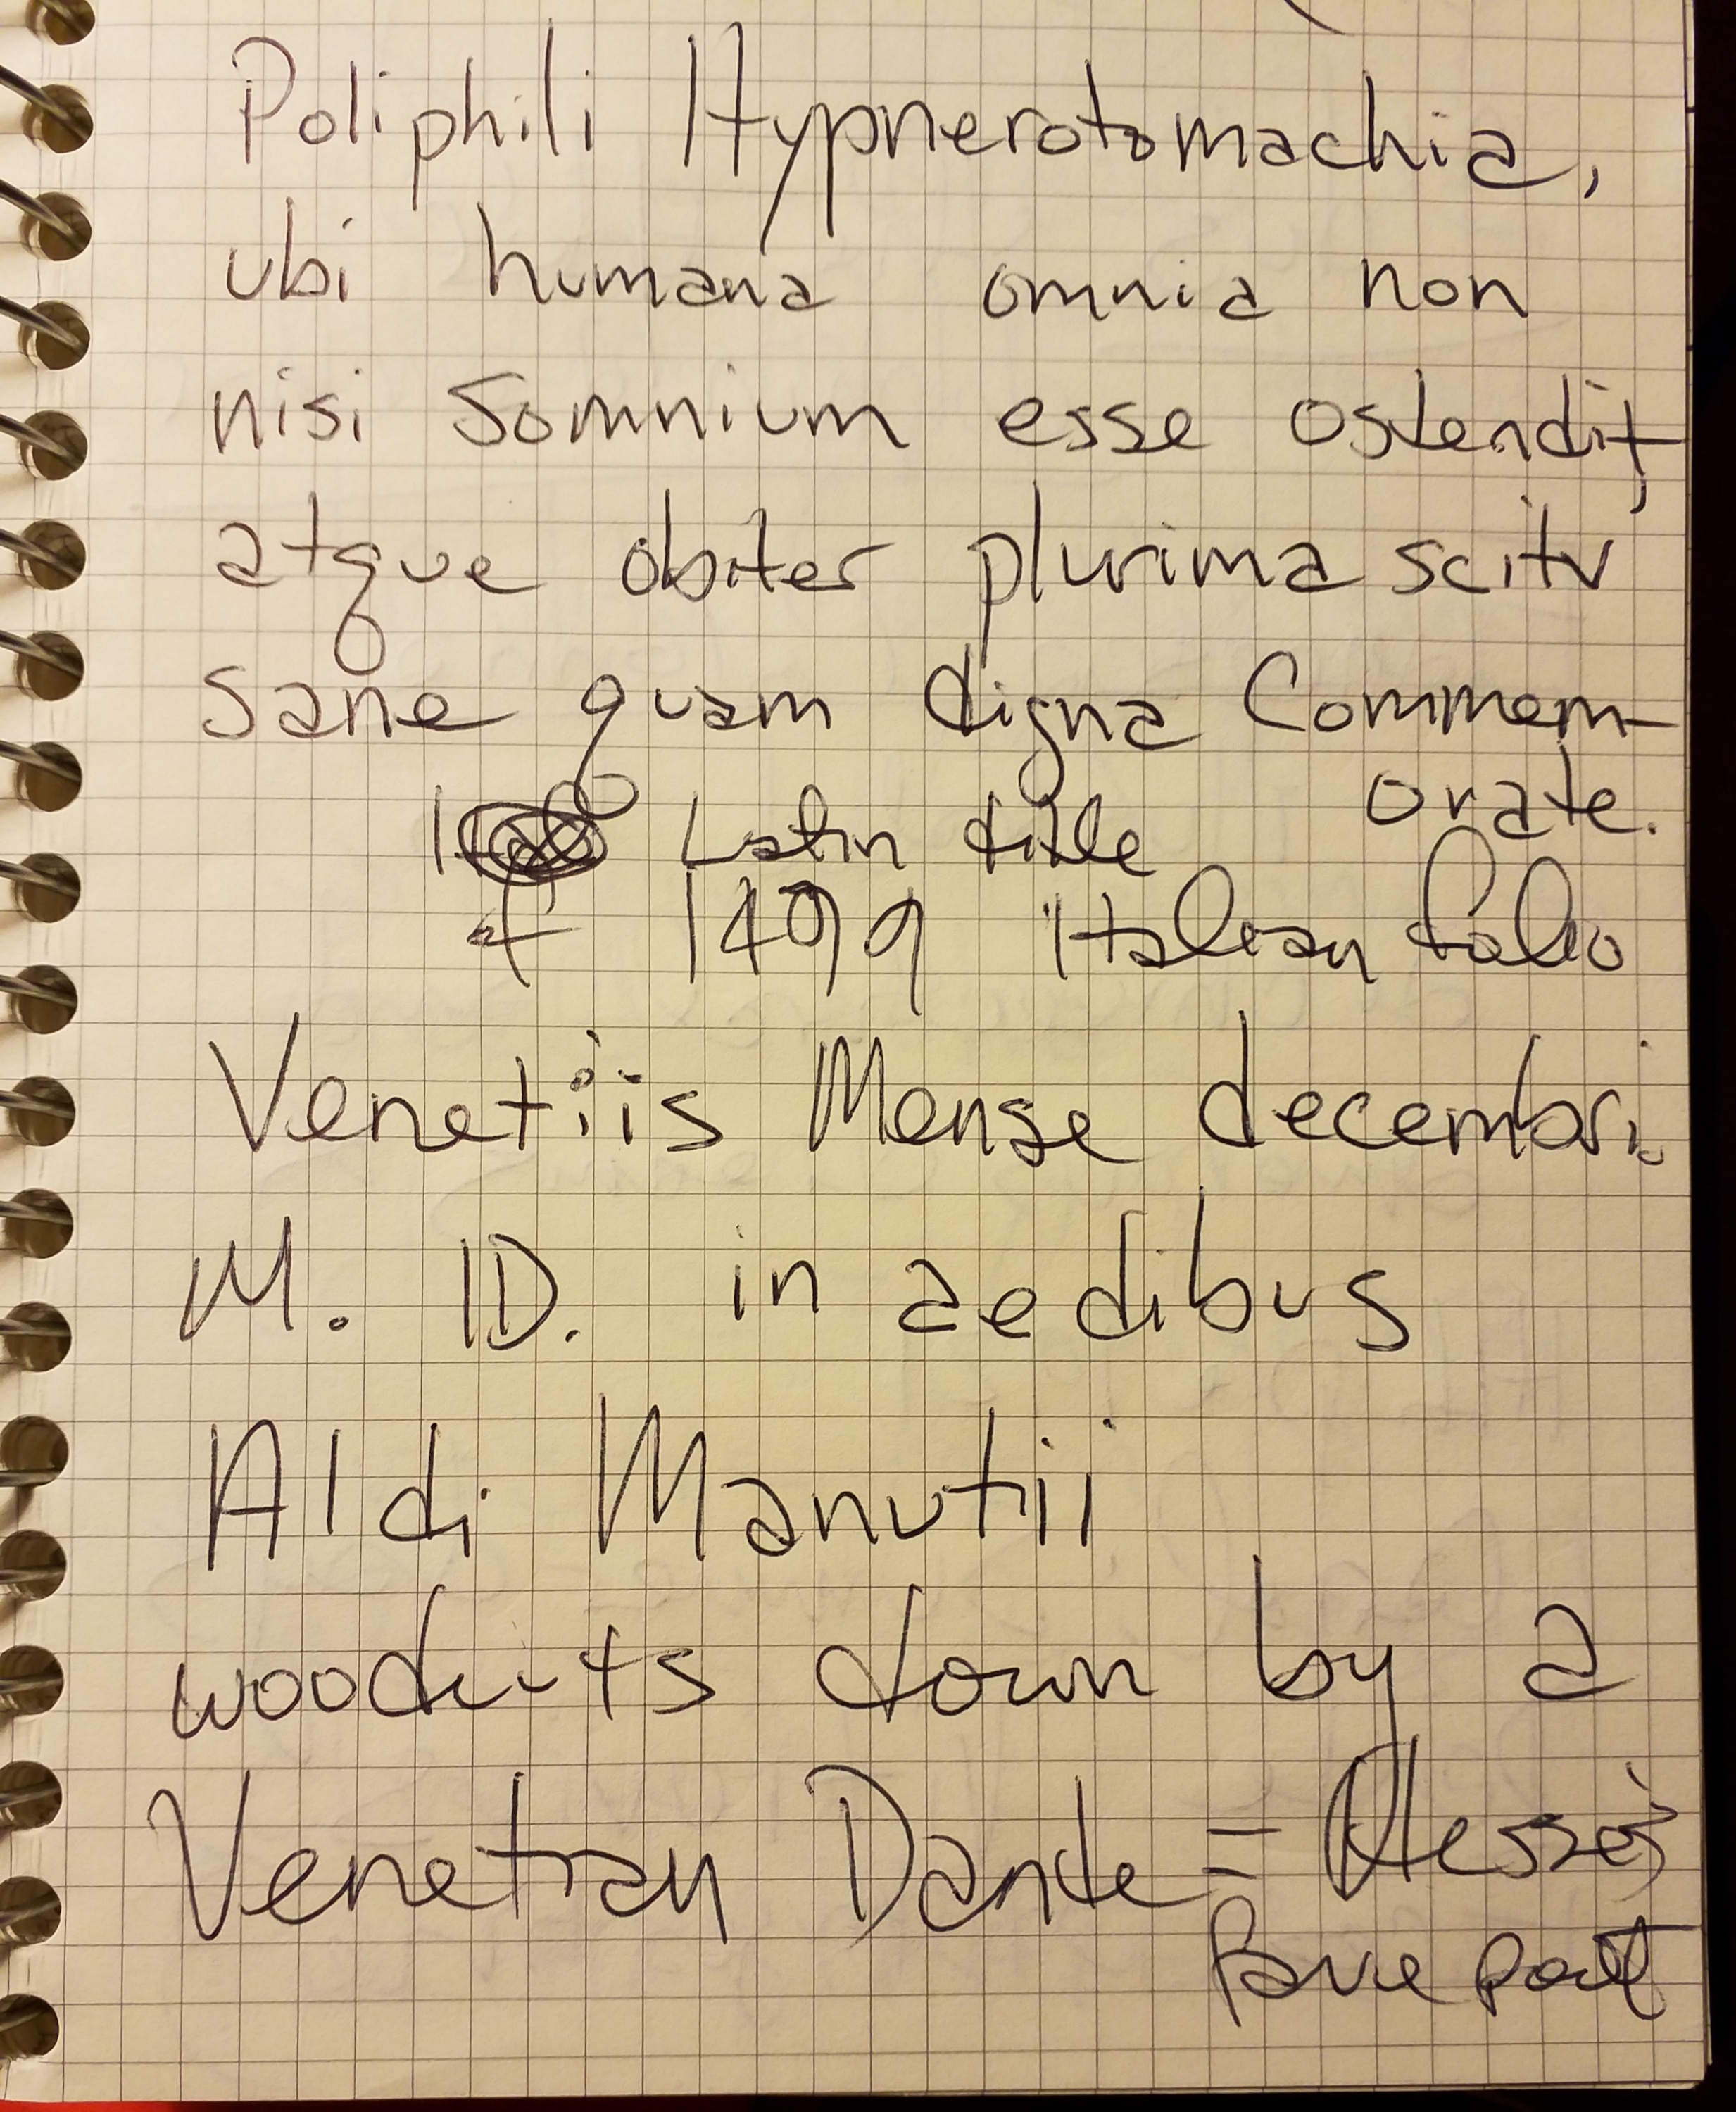 Poliphili Hypnerotomachia,
ubi humana omnia non
nisi somnium esse ostendit,
atque obiter plurima scitu
sane quam digna Commem-
orate.
Latin title
of 1499 Italian folio
Venetiis Mense decembri.
M. ID. in aedibus
Aldi Manutii
woodcuts down by a
Venetian Dante =
poet